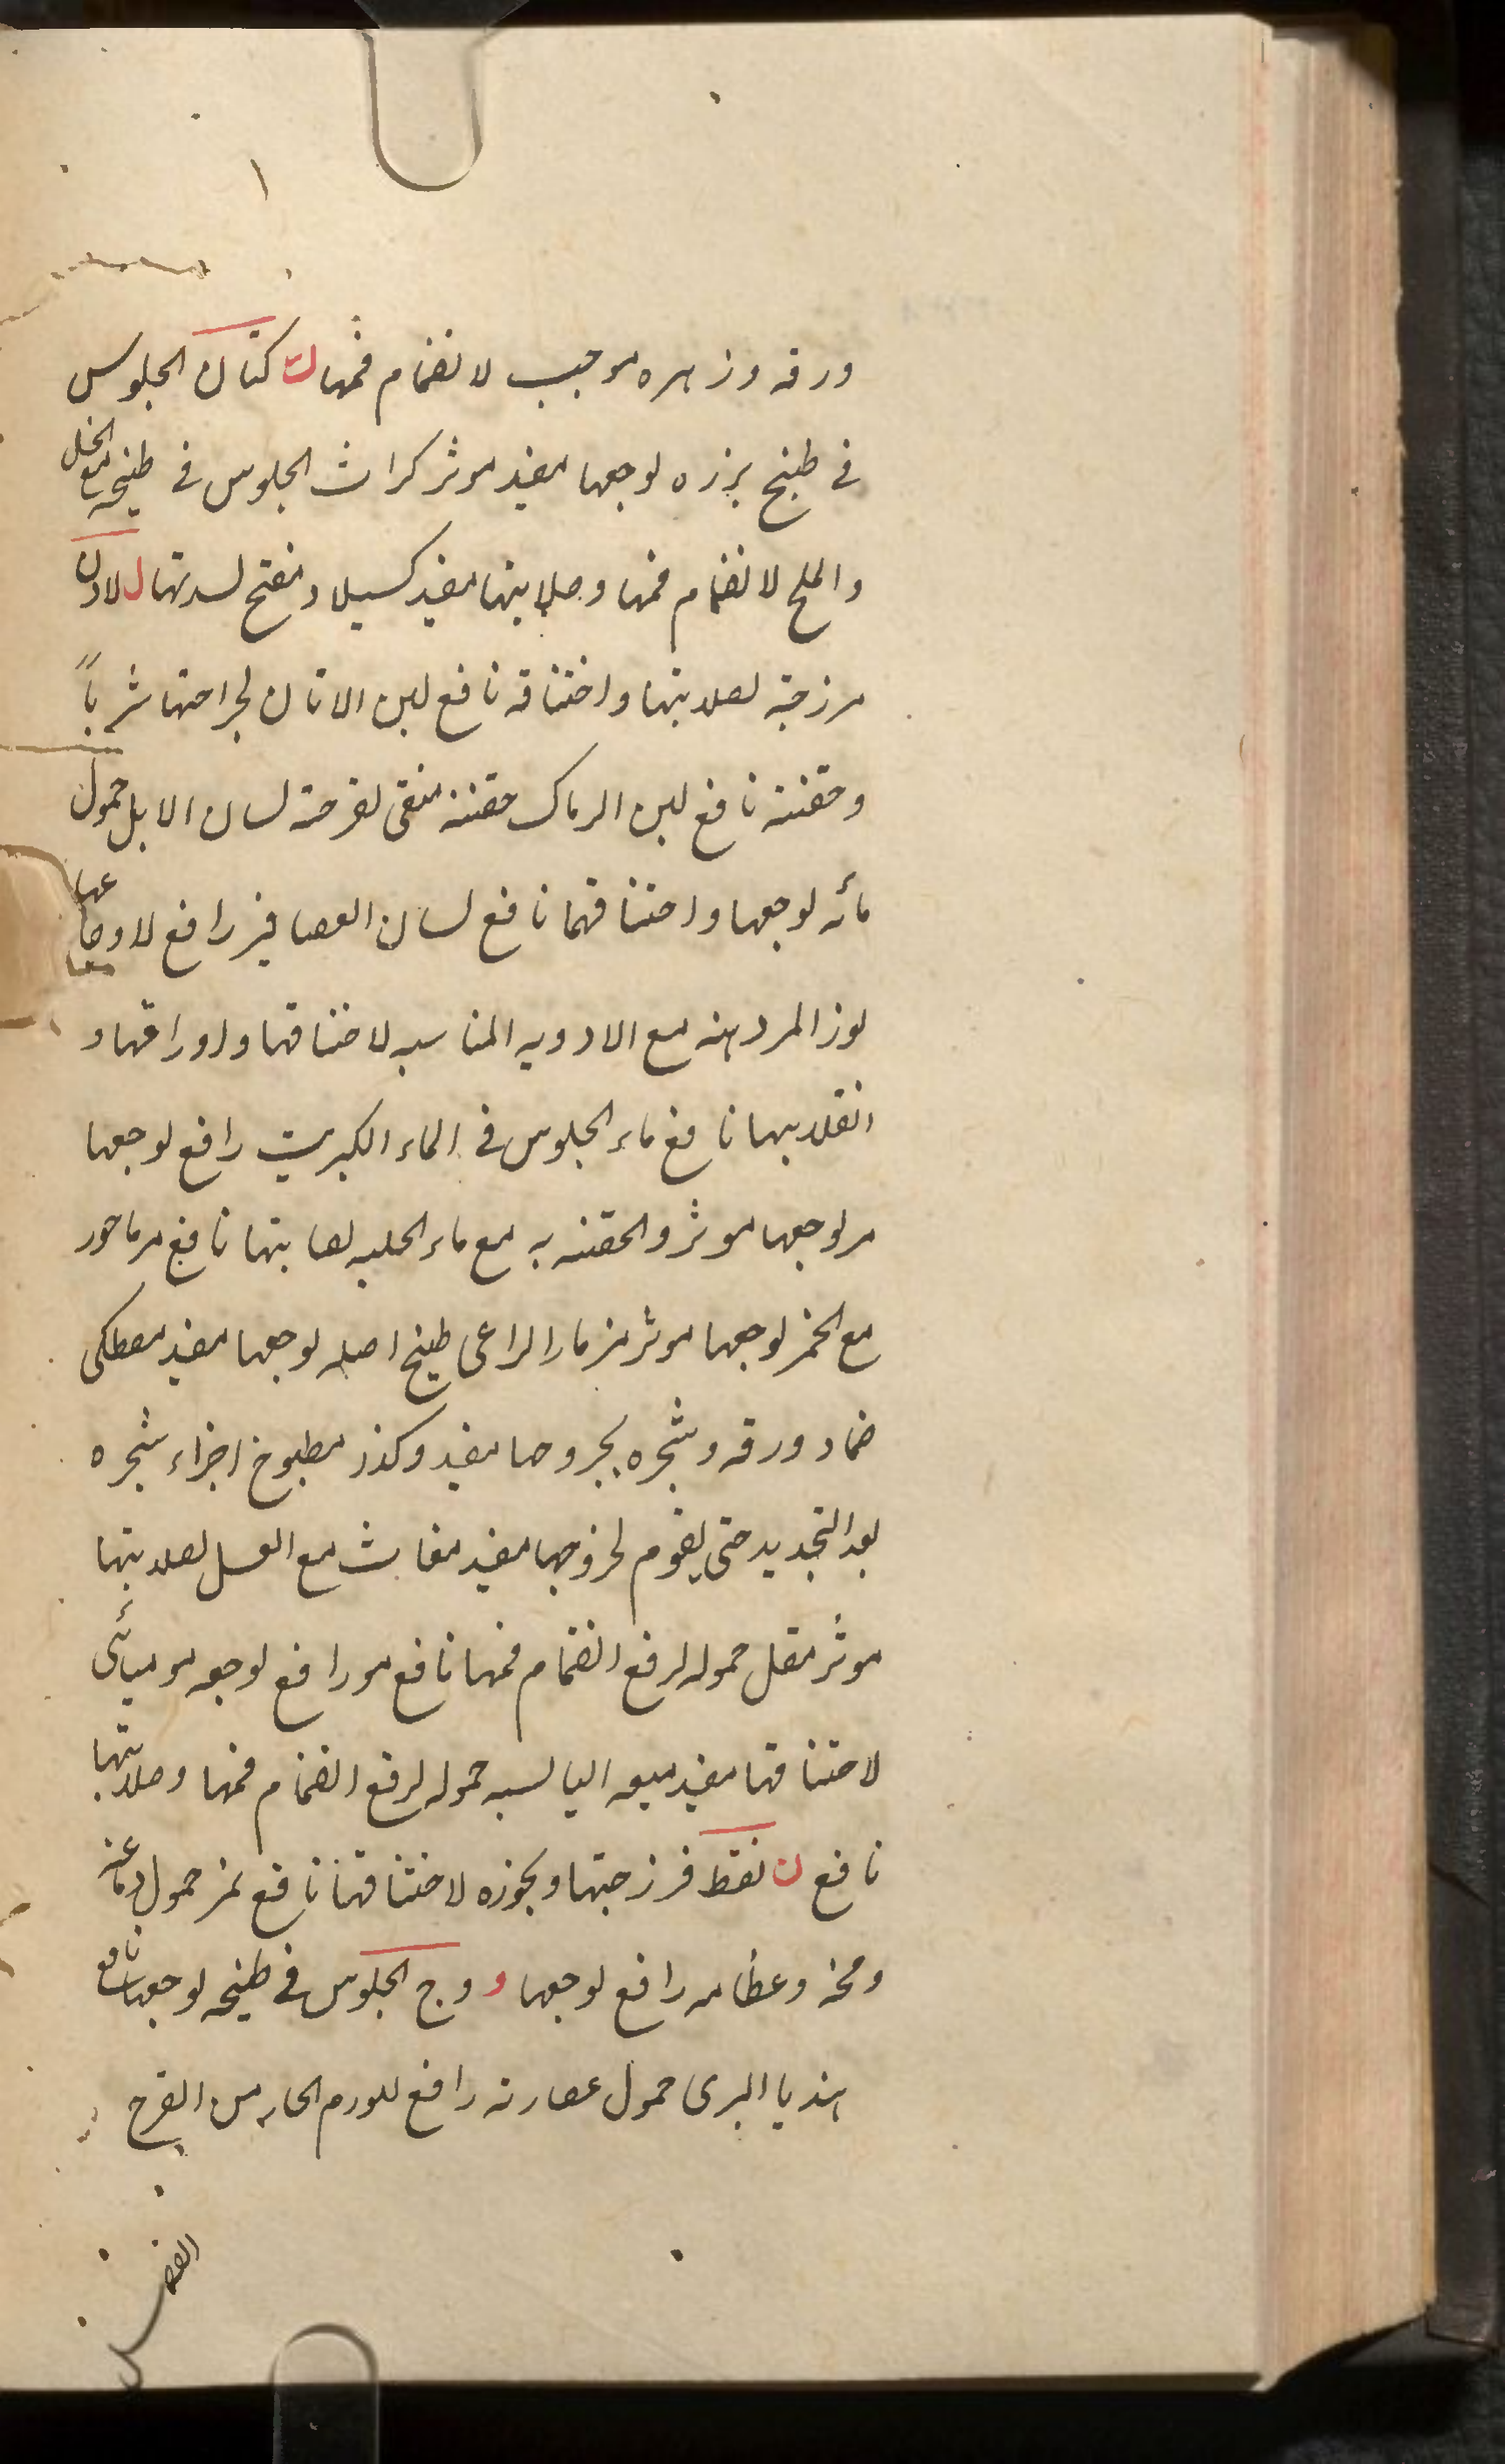 ورقه وزهره موجب لانضمام فمها ك كتان الجلوس
فى طبيخ بزره لوجعها مفيد موثر كراث الجلوس فى طبيخه مع الخل
والملح لانضمام فمها وصلابتها مفيد كسيلا مفتح لسدتها ل لادن
فرزجته لصلابتها واختناقه نافع لبن الاتان لجراحتها شرباً
وحقنته نافع لبن الرماك حقنته منقى لقرحته لسان الابل حمول
مائه لوجعها واختناقها نافع لسان العصافير رافع لاوجاعها
لوز المر دهنه مع الادويه المناسبه لاختناقها واورامها و
انقلابها نافع ماء الجلوس فى الماء الكبريت رافع لوجعها
مر لوجعها موثر والحقنه به مع ماء الحلبه لصلابتها نافع مرماحور
مع الخمر لوجعها موثر مزمار الراعى طبيخ اصله لوجعها مفيد مصطكى
ضماد ورقه وشجره بخروجها مفيد وكذا مطبوخ اجزاء شجره
بعد التجديد حتى يقوم لخروجها مفيد مغاث مع العسل لصلابتها
موثر مقل حموله لرفع انضمام فمها نافع مو رافع لوجعه موميائى
لاختناقها مفيد ميعه اليابسه حموله لرفع انضمام فمها وصلابتها
نافع ن نفط فرزجتها وبخوره لاختناقها نافع نمر حمول دماغه
ومخه وعظامه رافع لوجعها و وج الجلوس فى طبيخه لوجعها نافع
هندبا البرى حمول عصارته رافع للورم الحار من الفرج